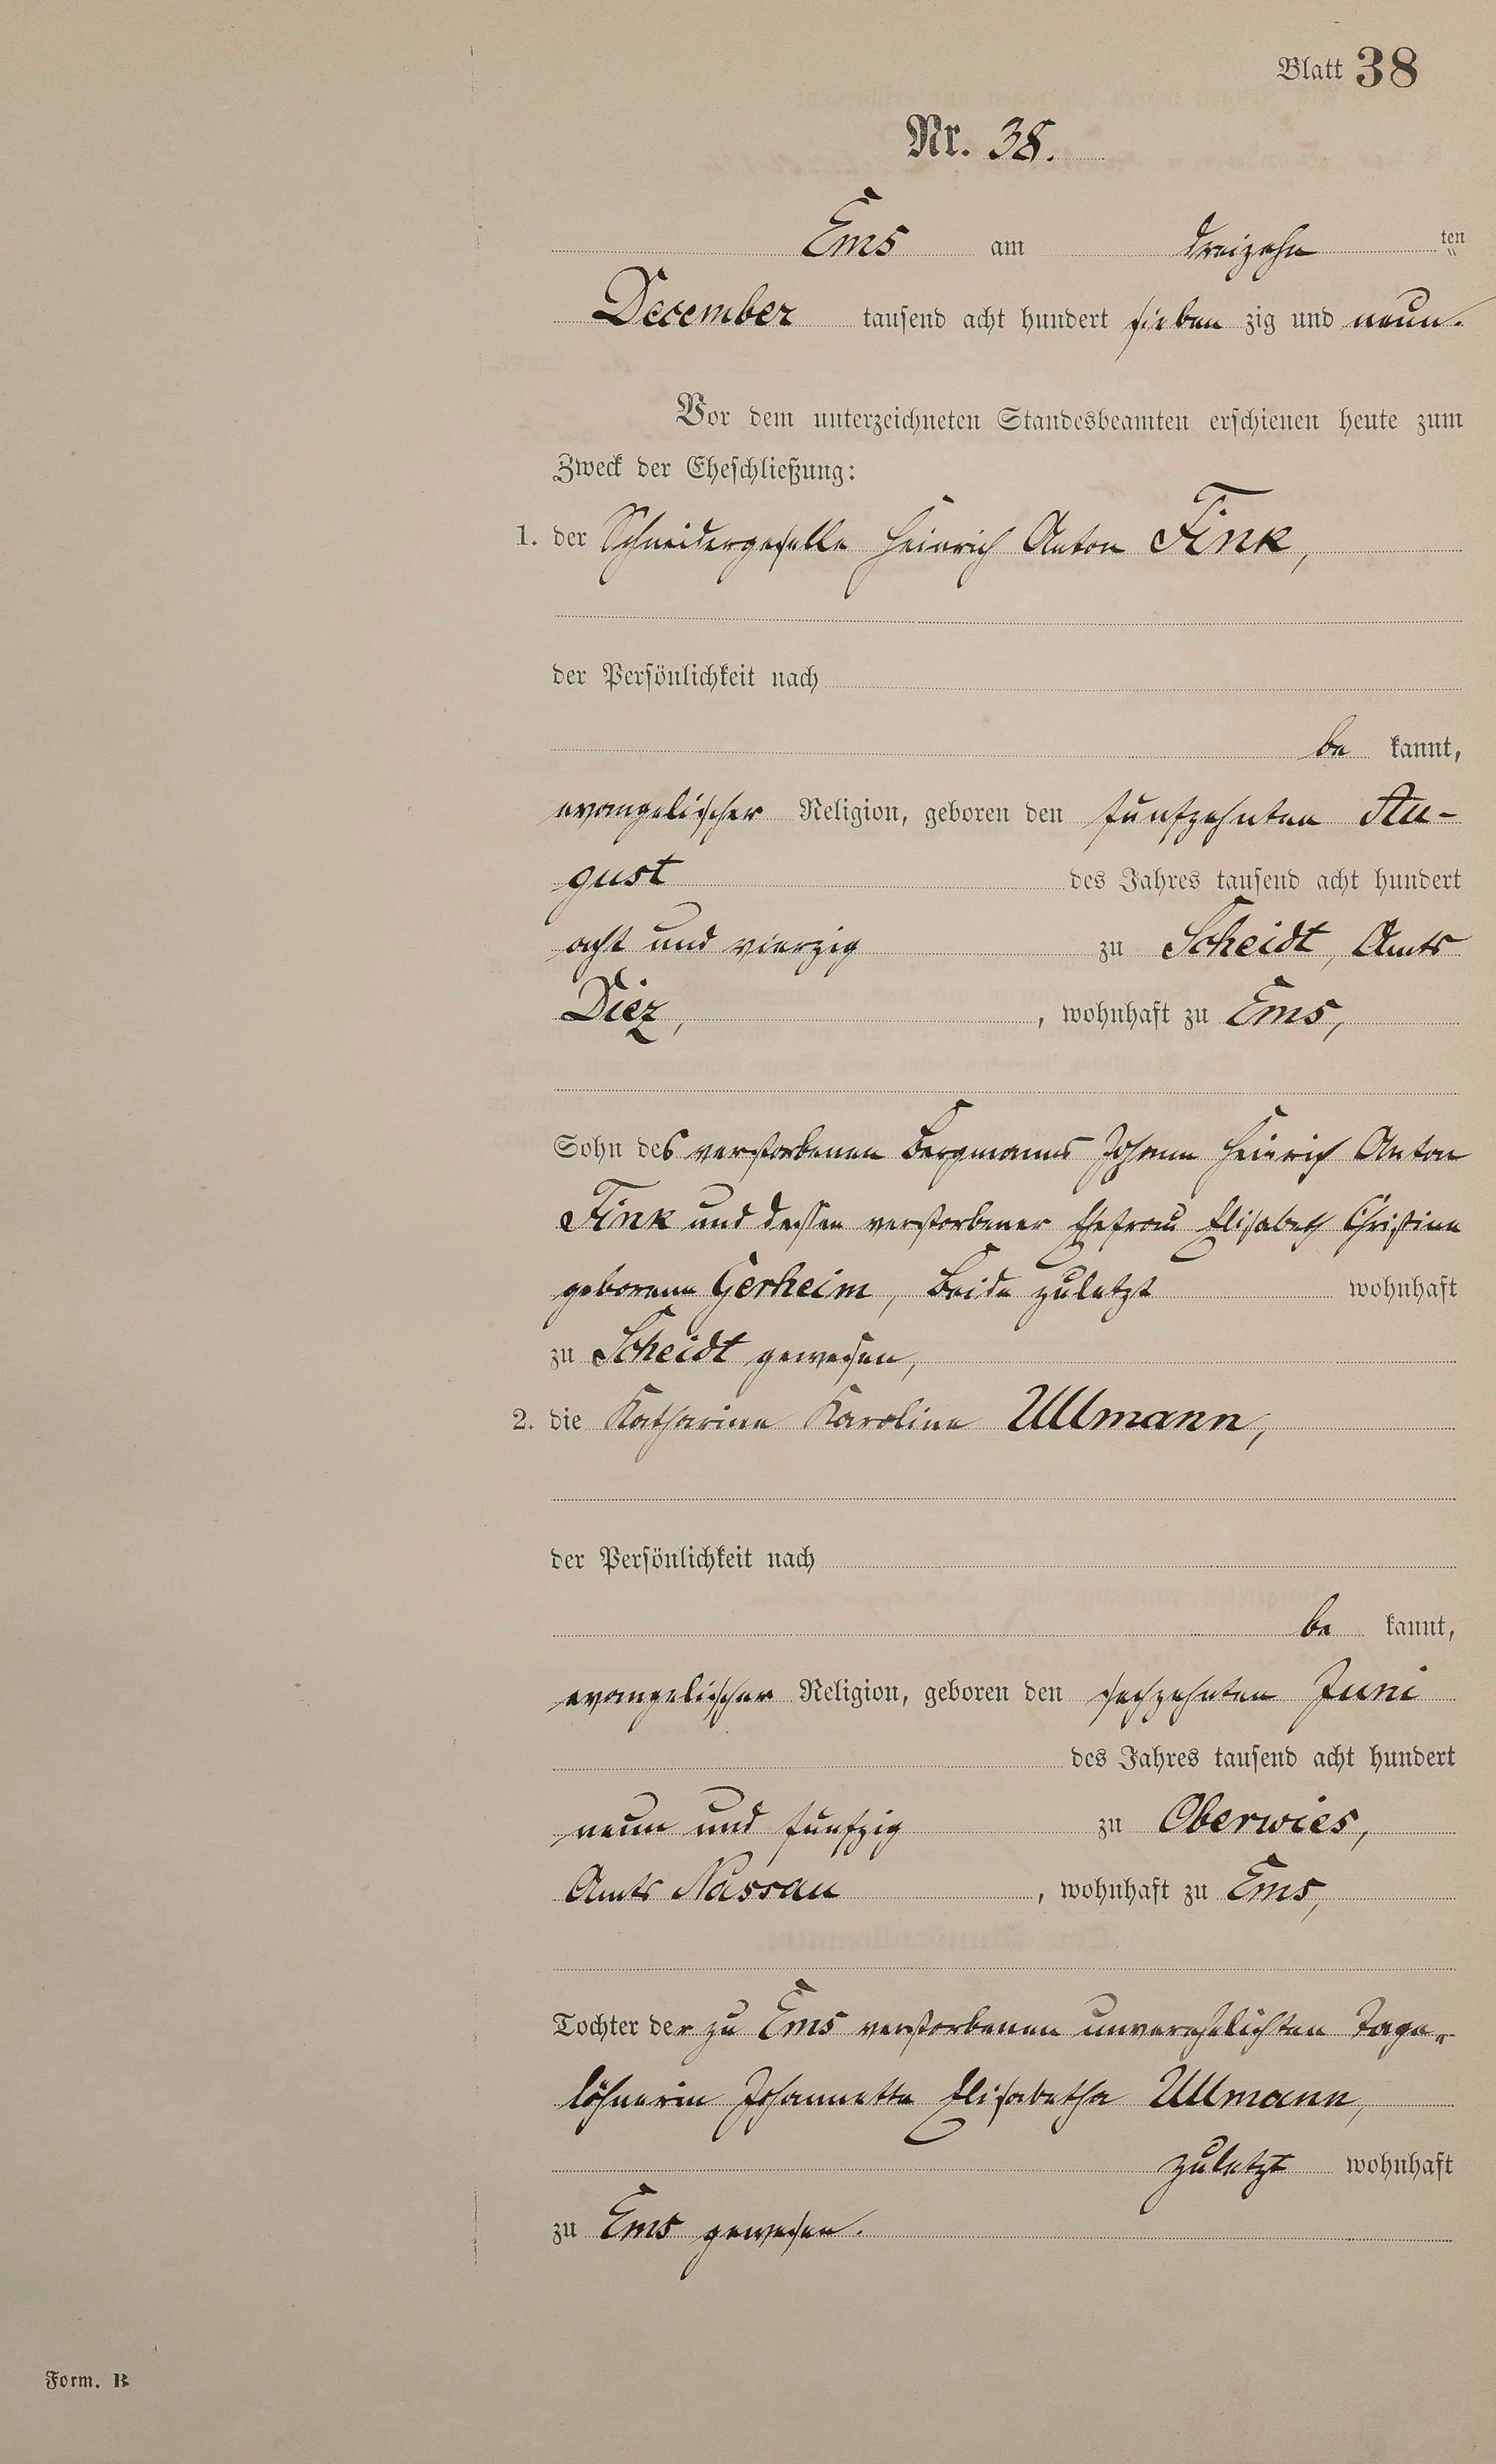 Blatt 38
Nr. 38.
Ems am dreizehn ten
December tausend acht hundert sieben zig und neun.
Vor dem unterzeichneten Standesbeamten erschienen heute zum
Zweck der Eheschließung:
1. der Schneidergeselle Heinrich Anton Fink,
der Persönlichkeit nach
be kannt,
evangelischer Religion, geboren den fünfzehnten Au-
gust des Jahres tausend acht hundert
acht und vierzig zu Scheidt, Amts
Diez, , wohnhaft zu Ems,
Sohn des verstorbenen Bergmanns Johann Heinrich Anton
Fink und dessen verstorbener Ehefrau Elisabeth Christine
geborene Gerheim, beide zuletzt wohnhaft
zu Scheidt gewesen,
2. die Katharine Karoline Ullmann,
der Persönlichkeit nach
be kannt,
evangelischer Religion, geboren den sechzehnten Juni
des Jahres tausend acht hundert
neun und fünfzig zu Oberwies,
Amts Nassau , wohnhaft zu Ems,
Tochter der zu Ems verstorbenen unverehelichten Tage„
löhnerin Johannette Elisabetha Ullmann,
zuletzt wohnhaft
zu Ems gewesen.
Form. B